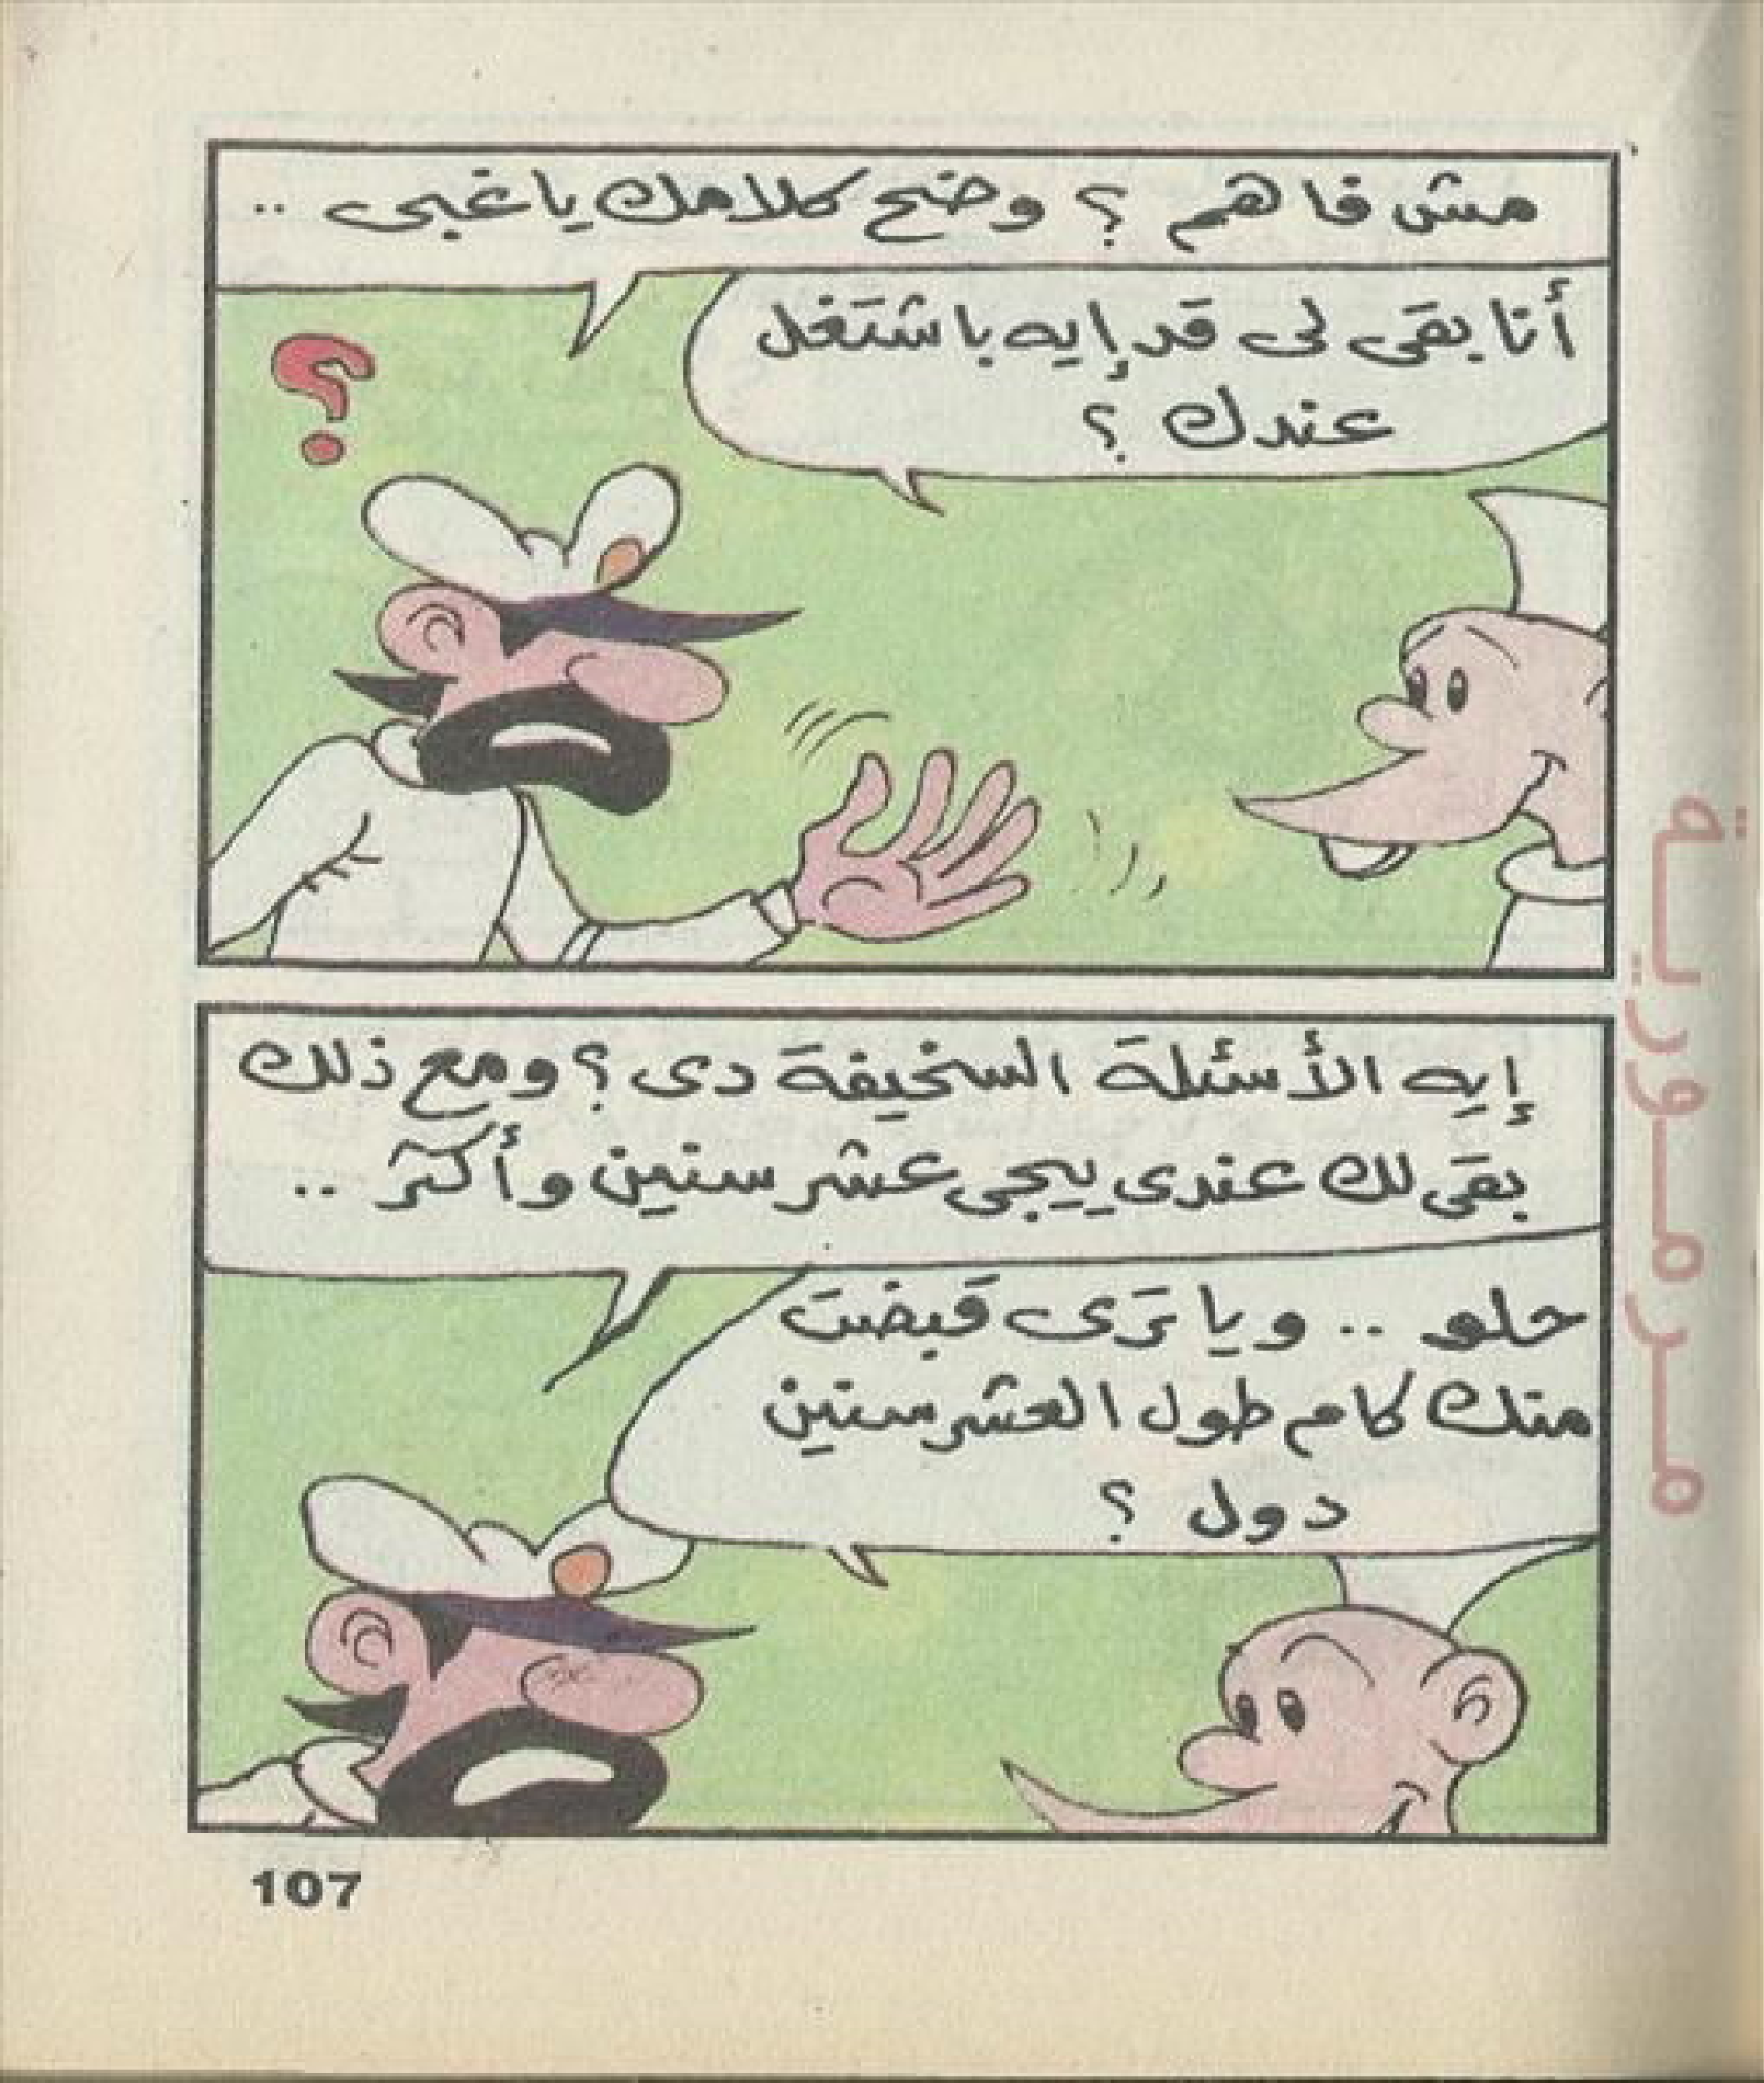 مش فاهم ؟ وضح كلامك ياغبى ..
أنا بقى لى قد إيه باشتغل
عندك ؟
إيه الأسئلة السخيفة دى ؟ ومع ذلك
بقى لك عندى ييجى عشر سنين وأكتر ..
حلو .. ويا ترى قبضت
منك كام طول العشر سنين
دول ؟
مرمورية
107